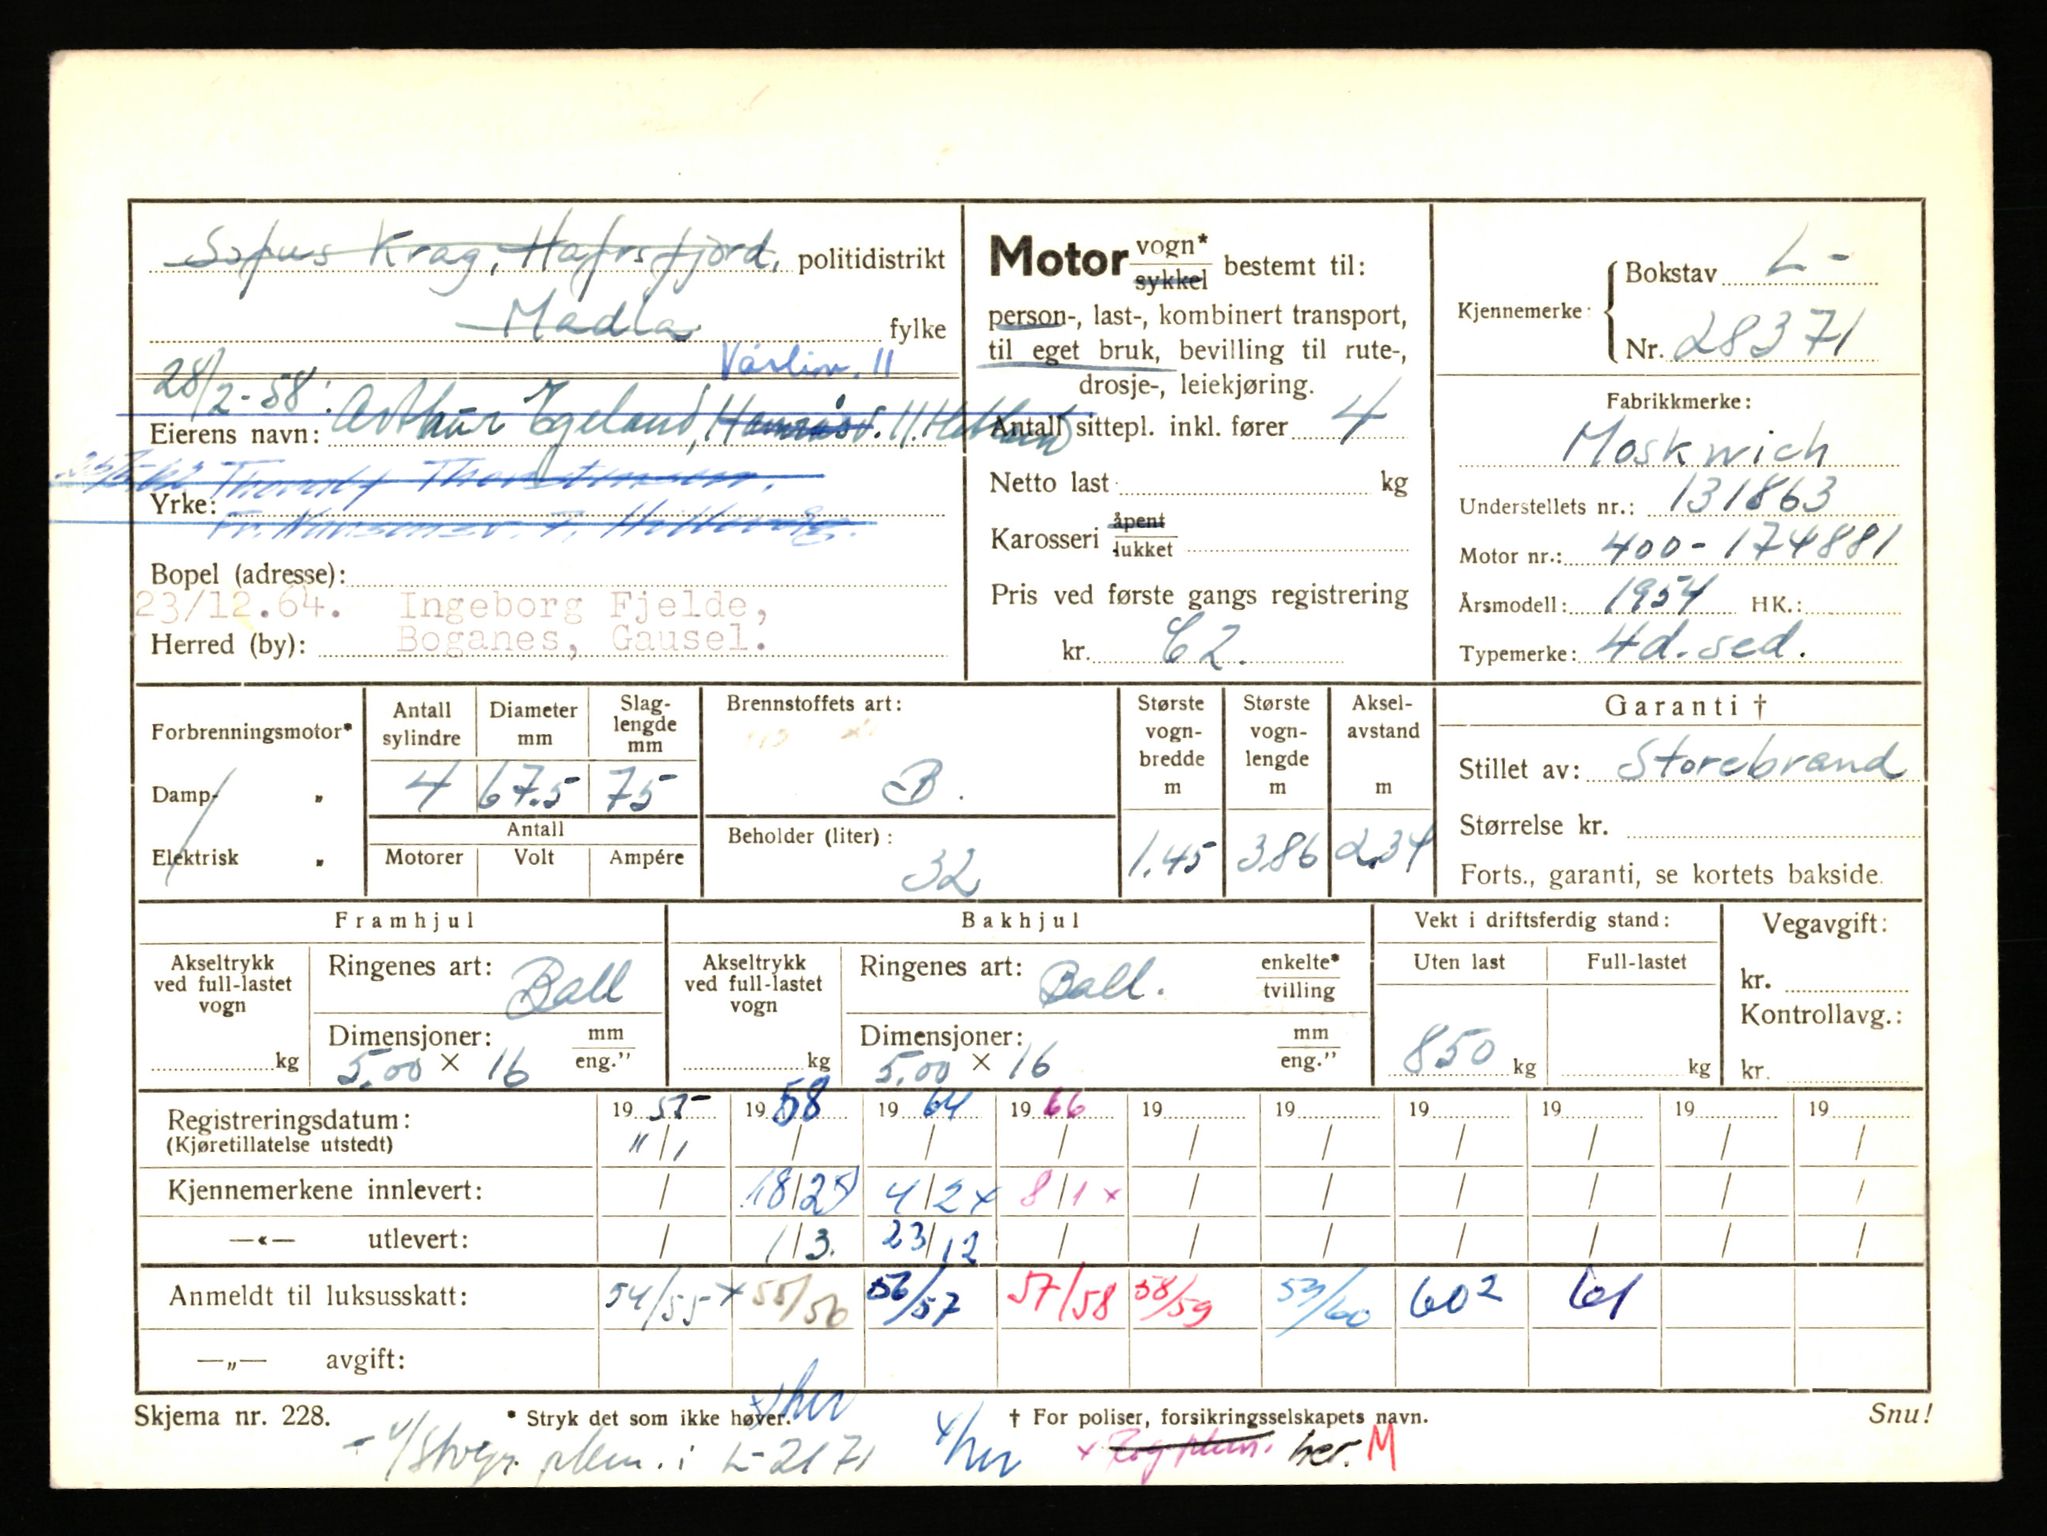 Sofus Krag, Hafrsfjord, politidistrikt
Madla fylke
Vårlivn. 11
28/2-58: Arthur Egeland, 11. Hetland
Eierens navn:
Yrke:
Bopel (adresse):
23/12.64. Ingeborg Fjelde,
Boganes, Gausel.
Herred (by):
Motor vogn* sykkel bestemt til:
person-, last-, kombinert transport,
til eget bruk, bevilling til rute-,
drosje-, leiekjøring.
Antall sittepl. inkl. fører 4
Netto last kg
Karosseri åpent lukket
Pris ved første gangs registrering
kr. C2.
Kjennemerke: Bokstav L-
Nr. 28371
Fabrikkmerke:
Moskwich
Understellets nr.: 131863
Motor nr.: 400-174881
Årsmodell: 1954 HK.:
Typemerke: 4d.sed.
Forbrenningsmotor*
Damp- „
Elektrisk „
Antall sylindre 4
Diameter mm 67.5
Slaglengde mm 75
Antall
Motorer Volt Ampére
Brennstoffets art:
B.
Beholder (liter):
32
Største vognbredde m 1.45
Største vognlengde m 3.86
Akselavstand m 2.34
Garanti †
Stillet av: Storebrand
Størrelse kr.
Forts., garanti, se kortets bakside.
Framhjul
Akseltrykk ved full-lastet vogn kg
Ringenes art: Ball
Dimensjoner: mm
5,00 × 16 eng.”
Bakhjul
Akseltrykk ved full-lastet vogn kg
Ringenes art: Ball. enkelte* tvilling
Dimensjoner: mm
5,00 × 16 eng.”
Vekt i driftsferdig stand:
Uten last Full-lastet
850 kg kg
Vegavgift:
kr.
Kontrollavg.:
kr.
Registreringsdatum: 1955 1958 1964 1966 19 19 19 19 19 19
(Kjøretillatelse utstedt) 11/1 / / / / / / / / /
Kjennemerkene innlevert: / 18/2 x 4/2 x 8/1 x / / / / / /
—«— utlevert: / 1/3. 23/12 / / / / / / /
Anmeldt til luksusskatt: 54/55 x 55/56 56/57 57/58 58/59 59/60 602 61
—„— avgift:
Skjema nr. 228. * Stryk det som ikke høver. x her † For poliser, forsikringsselskapets navn. Snu!
i L-2171 x her x her. M